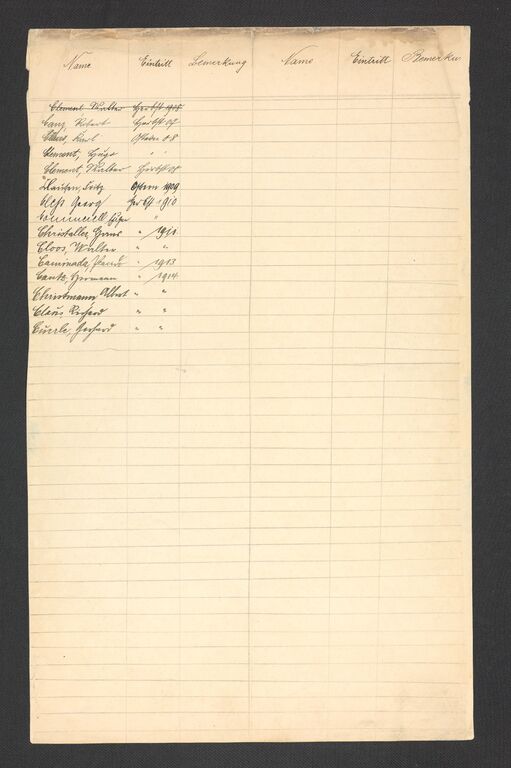 Name Eintritt Bemerkung Name Eintritt Bemerku
Clement Walter Herbst 1908
Canz Robert Herbst 07
Claus, Karl 08
Clement, Hugo "
Clement, Walter Herbst 08
Fritz Ostern 1909
Cleß Georg Herbst 1910
Commerell "
Christaller, Hans " 1911
Cloos, Walter " "
Caminada, " 1913
Cantz, Hermann " 1914
Christmann Albert " "
Claus, Richard " "
Gerhard " "